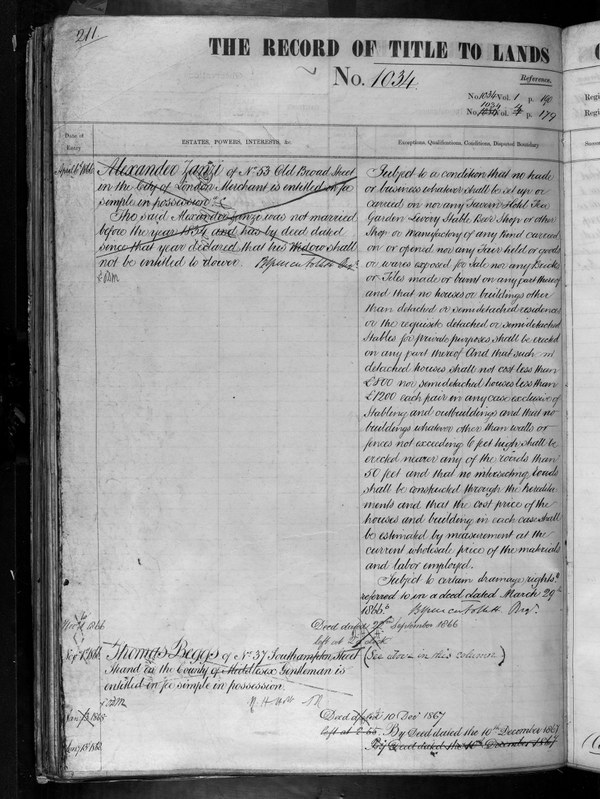 211
THE RECORD OF TITLE TO LANDS
No. 1034
Reference.
No. 1034 Vol. 1 p. 190
1034
No. Vol. p. 179
Date of
Entry
ESTATES, POWERS, INTERESTS, &c.
Exceptions, Qualifications, Conditions, Disputed Boundary
April 1866
Alexander of No 53 Old Broad Street
in the City of London Merchant is entitled in fee
simple in possession
The said Alexander was not married
before the year 1834 and has by deed dated
since that year declared that his Widow shall
not be entitled to dower.
Subject to a condition that no trade
or business whatever shall be set up or
carried on nor any Tavern Hotel Tea
Garden Livery Stable Beer Shop or other
Shop or manufactory of any kind carried
on or opened nor any Fair held or goods
or wares exposed for Sale nor any Brick
or Tiles made or burnt on any part thereof
and that no houses or buildings other
than detached or semidetached residences
or the requisite detached or semidetached
Stables for private purposes shall be erected
on any part thereof And that such
detached houses shall not cost less than
nor semidetached houses less than
£1200 each pair in any case exclusive of
Stabling and outbuildings and that no
buildings whatever other than walls or
fences not exceeding 6 feet high shall be
erected nearer any of the roads than
50 feet and that no intersecting roads
shall be constructed through the heredita
ments and that the cost price of the
houses and building in each case shall
be estimated by measurement at the
current wholesale price of the materials
and labor employed.
Subject to certain drainage rights
referred to in a deed dated March 29th
1866
1866
Deed dated September 1866
left at
Thomas Beggs of No 37 Southampton Street
Strand in the County of Middlesex Gentleman is
entitled in fee simple in possession.
(See above in this column)
1868
Deed dated 10 Decr 1867
left at
By Deed dated the 10th December 1867
By Deed dated the 10th December 1867